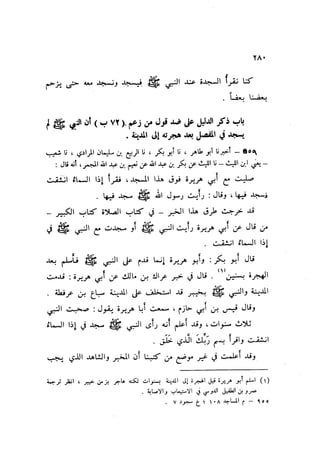 ٢٨٠
كنا نقرأ السجدة عند النبي ﷺ فيسجد ونسجد معه حتى يزحم
بعضنا بعضاً .
باب ذكر الدليل على ضد قول من زعم (٧٢ ب) أن النبي ﷺ لم
يسجد في المفصل بعد هجرته إلى المدينة .
٥٥٩ - أخبرنا أبو طاهر ، نا أبو بكر ، نا الربيع بن سليمان المرادي ، نا شعيب
- يعني ابن الليث - نا الليث عن بكر بن عبد الله عن نعيم بن عبد الله المجمر ، أنه قال :
صليت مع أبي هريرة فوق هذا المسجد ، فقرأ إذا السماء انشقت
فسجد فيها ، وقال : رأيت رسول الله ﷺ سجد فيها .
قد خرجت طرق هذا الخبر - في كتاب الصلاة كتاب الكبير -
من قال عن أبي هريرة رأيت النبي ﷺ أو سجدت مع النبي ﷺ في
إذا السماء انشقت .
قال أبو بكر : وأبو هريرة إنما قدم على النبي ﷺ فأسلم بعد
الهجرة بسنين (١) . قال في خبر عراك بن مالك عن أبي هريرة : قدمت
المدينة والنبي ﷺ بخيبر قد استخلف على المدينة سباع بن عرفطة .
وقال قيس بن أبي حازم ، سمعت أبا هريرة يقول : صحبت النبي
ثلاث سنوات ، وقد أعلم أنه رأى النبي ﷺ سجد في إذا السماء
انشقت واقرأ بسم ربك الذي خلق .
وقد أعلمت في غير موضع من كتبنا أن المخبر والشاهد الذي يجب
(١) اسلم أبو هريرة قبل الهجرة إلى المدينة بسنوات لكنه هاجر بزمن خيبر ، انظر ترجمة
عمرو بن الطفيل الدوسي في الاستيعاب والاصابة .
٥٥٥ - م المساجد ١٠٨ ؛ خ سجود ٧ .